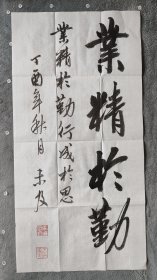 業精於勤
業精於勤行成於思
丁酉年秋月